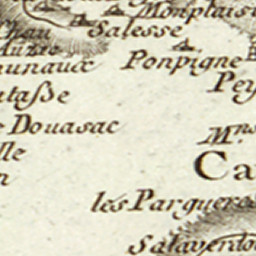 Monplaisi
Salesse
Chau
Auzie
aunaux
Ponpigne
Pey
ataße
Douasac
Mns
lle
Ca
n
les Parguero
Salaverdo